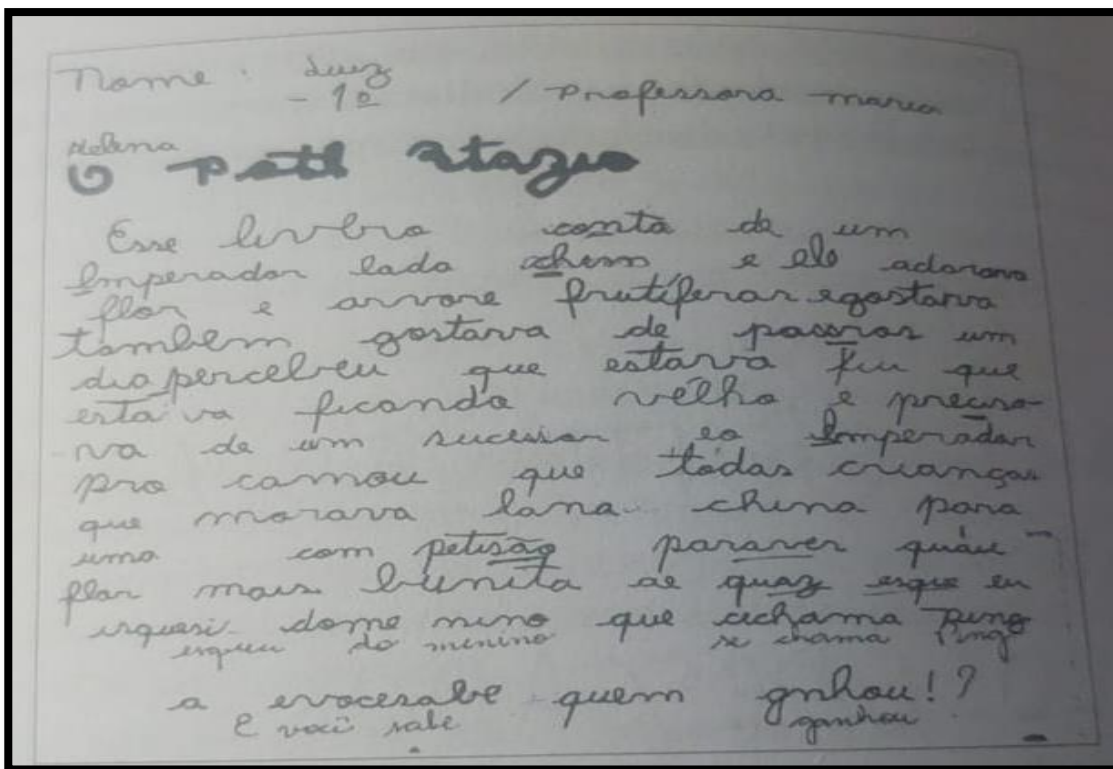 Nome: Luiz
- 1º / Professora maria
Helena
O pott Vazio
Esse livbro conta de um
Emperador lado chino e ele adorava
flor e arvore frutíferar egostarva
tambem gostarva de pasaros um
dia percebeu que estarva ficu que
esta va ficando vélho e precisa-
va de um sucessor eo Emperador
pro camou que tôdas crianças
que morava lana china para
uma com petisão paraver quáu
flor mais bunita ae quaz esque eu
isquesi dome nino que cichama Ping
esqueci do menino se chama Ping
a evocesabe quem gnhou!?
E você sabe ganhou